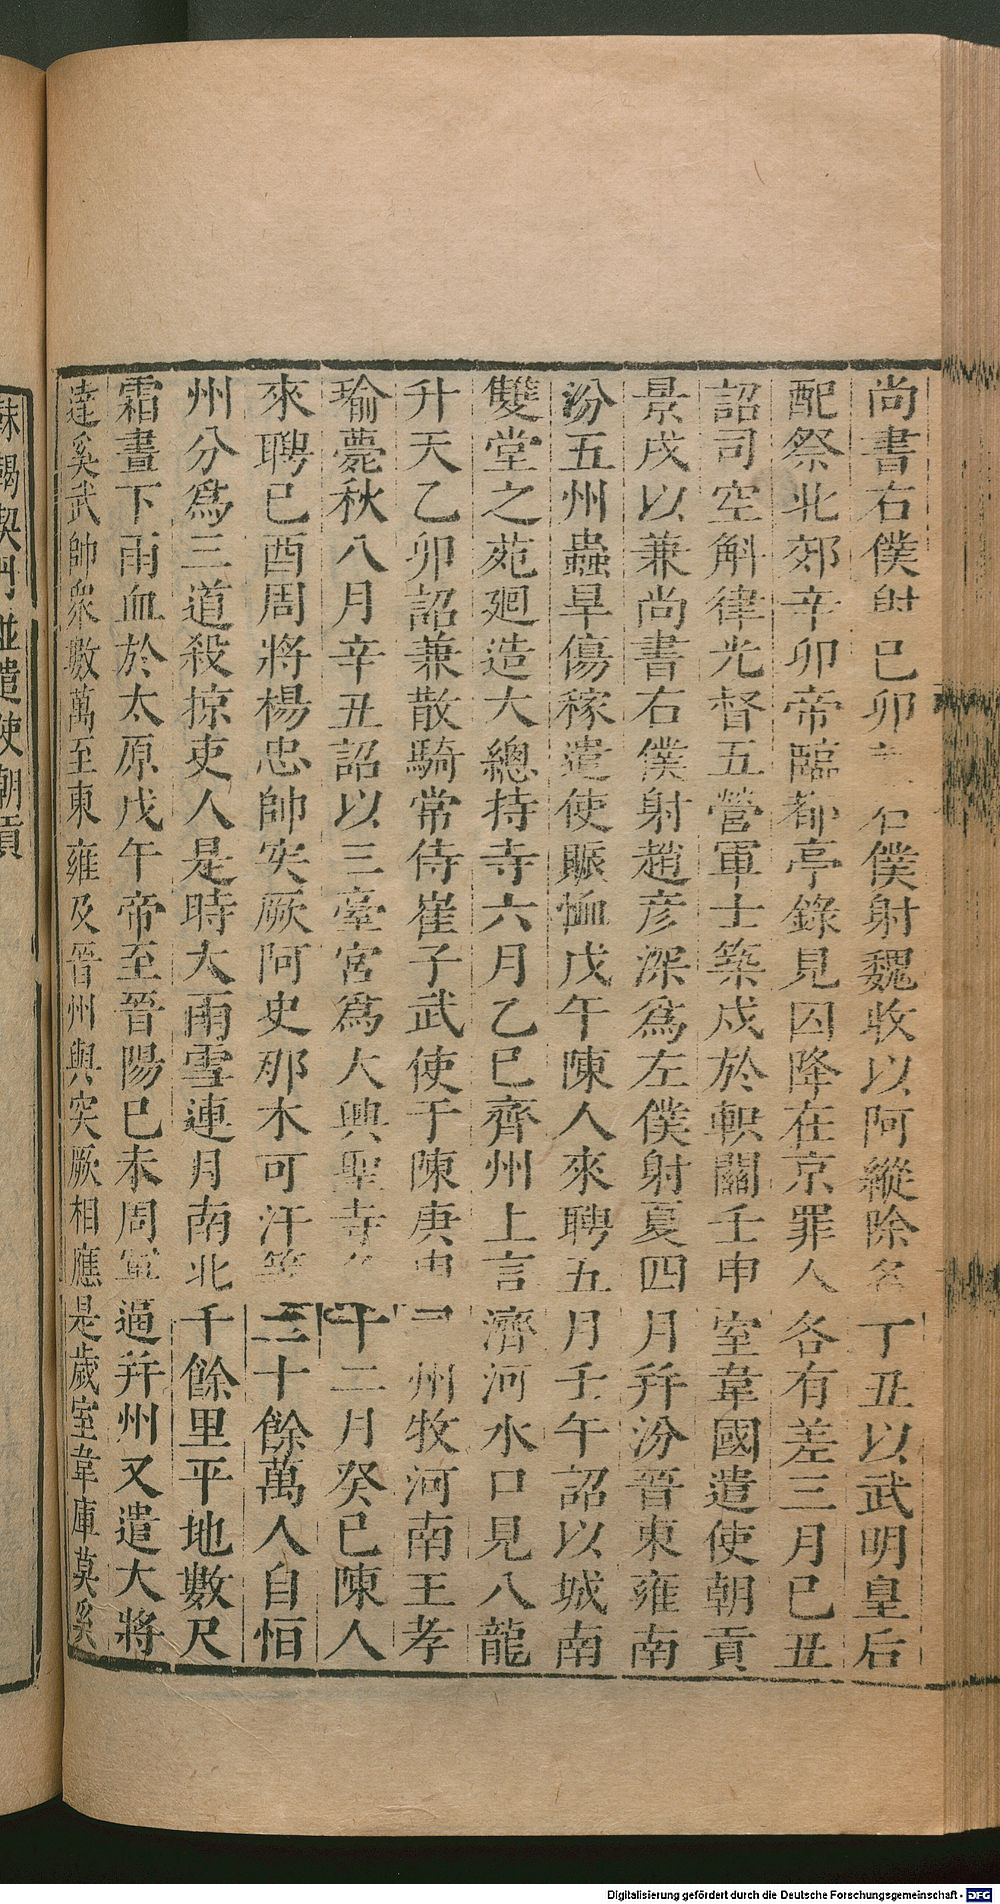 尚書右僕射己卯右僕射魏收以阿縱除名丁丑以武明皇后
配祭北郊辛卯帝臨都亭錄見囚降在京罪人各有差三月己丑
詔司空斛律光督五營軍士築戍於軹關壬申室韋國遣使朝貢
景戌以兼尚書右僕射趙彦深爲左僕射夏四月幷汾晉東雍南
汾五州蟲旱傷稼遣使賑恤戊午陳人來聘五月壬午詔以城南
雙堂之苑廻造大總持寺六月乙巳齊州上言濟河水口見八龍
升天乙卯詔兼散騎常侍崔子武使于陳庚申司州牧河南王孝
瑜薨秋八月辛丑詔以三臺宮爲大興聖寺冬十二月癸巳陳人
來聘已酉周將楊忠帥突厥阿史那木可汗等二十餘萬人自恒
州分爲三道殺掠吏人是時大雨雪連月南北千餘里平地數尺
霜晝下雨血於太原戊午帝至晉陽已未周軍逼幷州又遣大將
達奚武帥衆數萬至東雍及晉州與突厥相應是歲室韋庫莫奚
靺鞨契丹並遣使朝貢
Digitalisierung gefördert durch die Deutsche Forschungsgemeinschaft - DFG